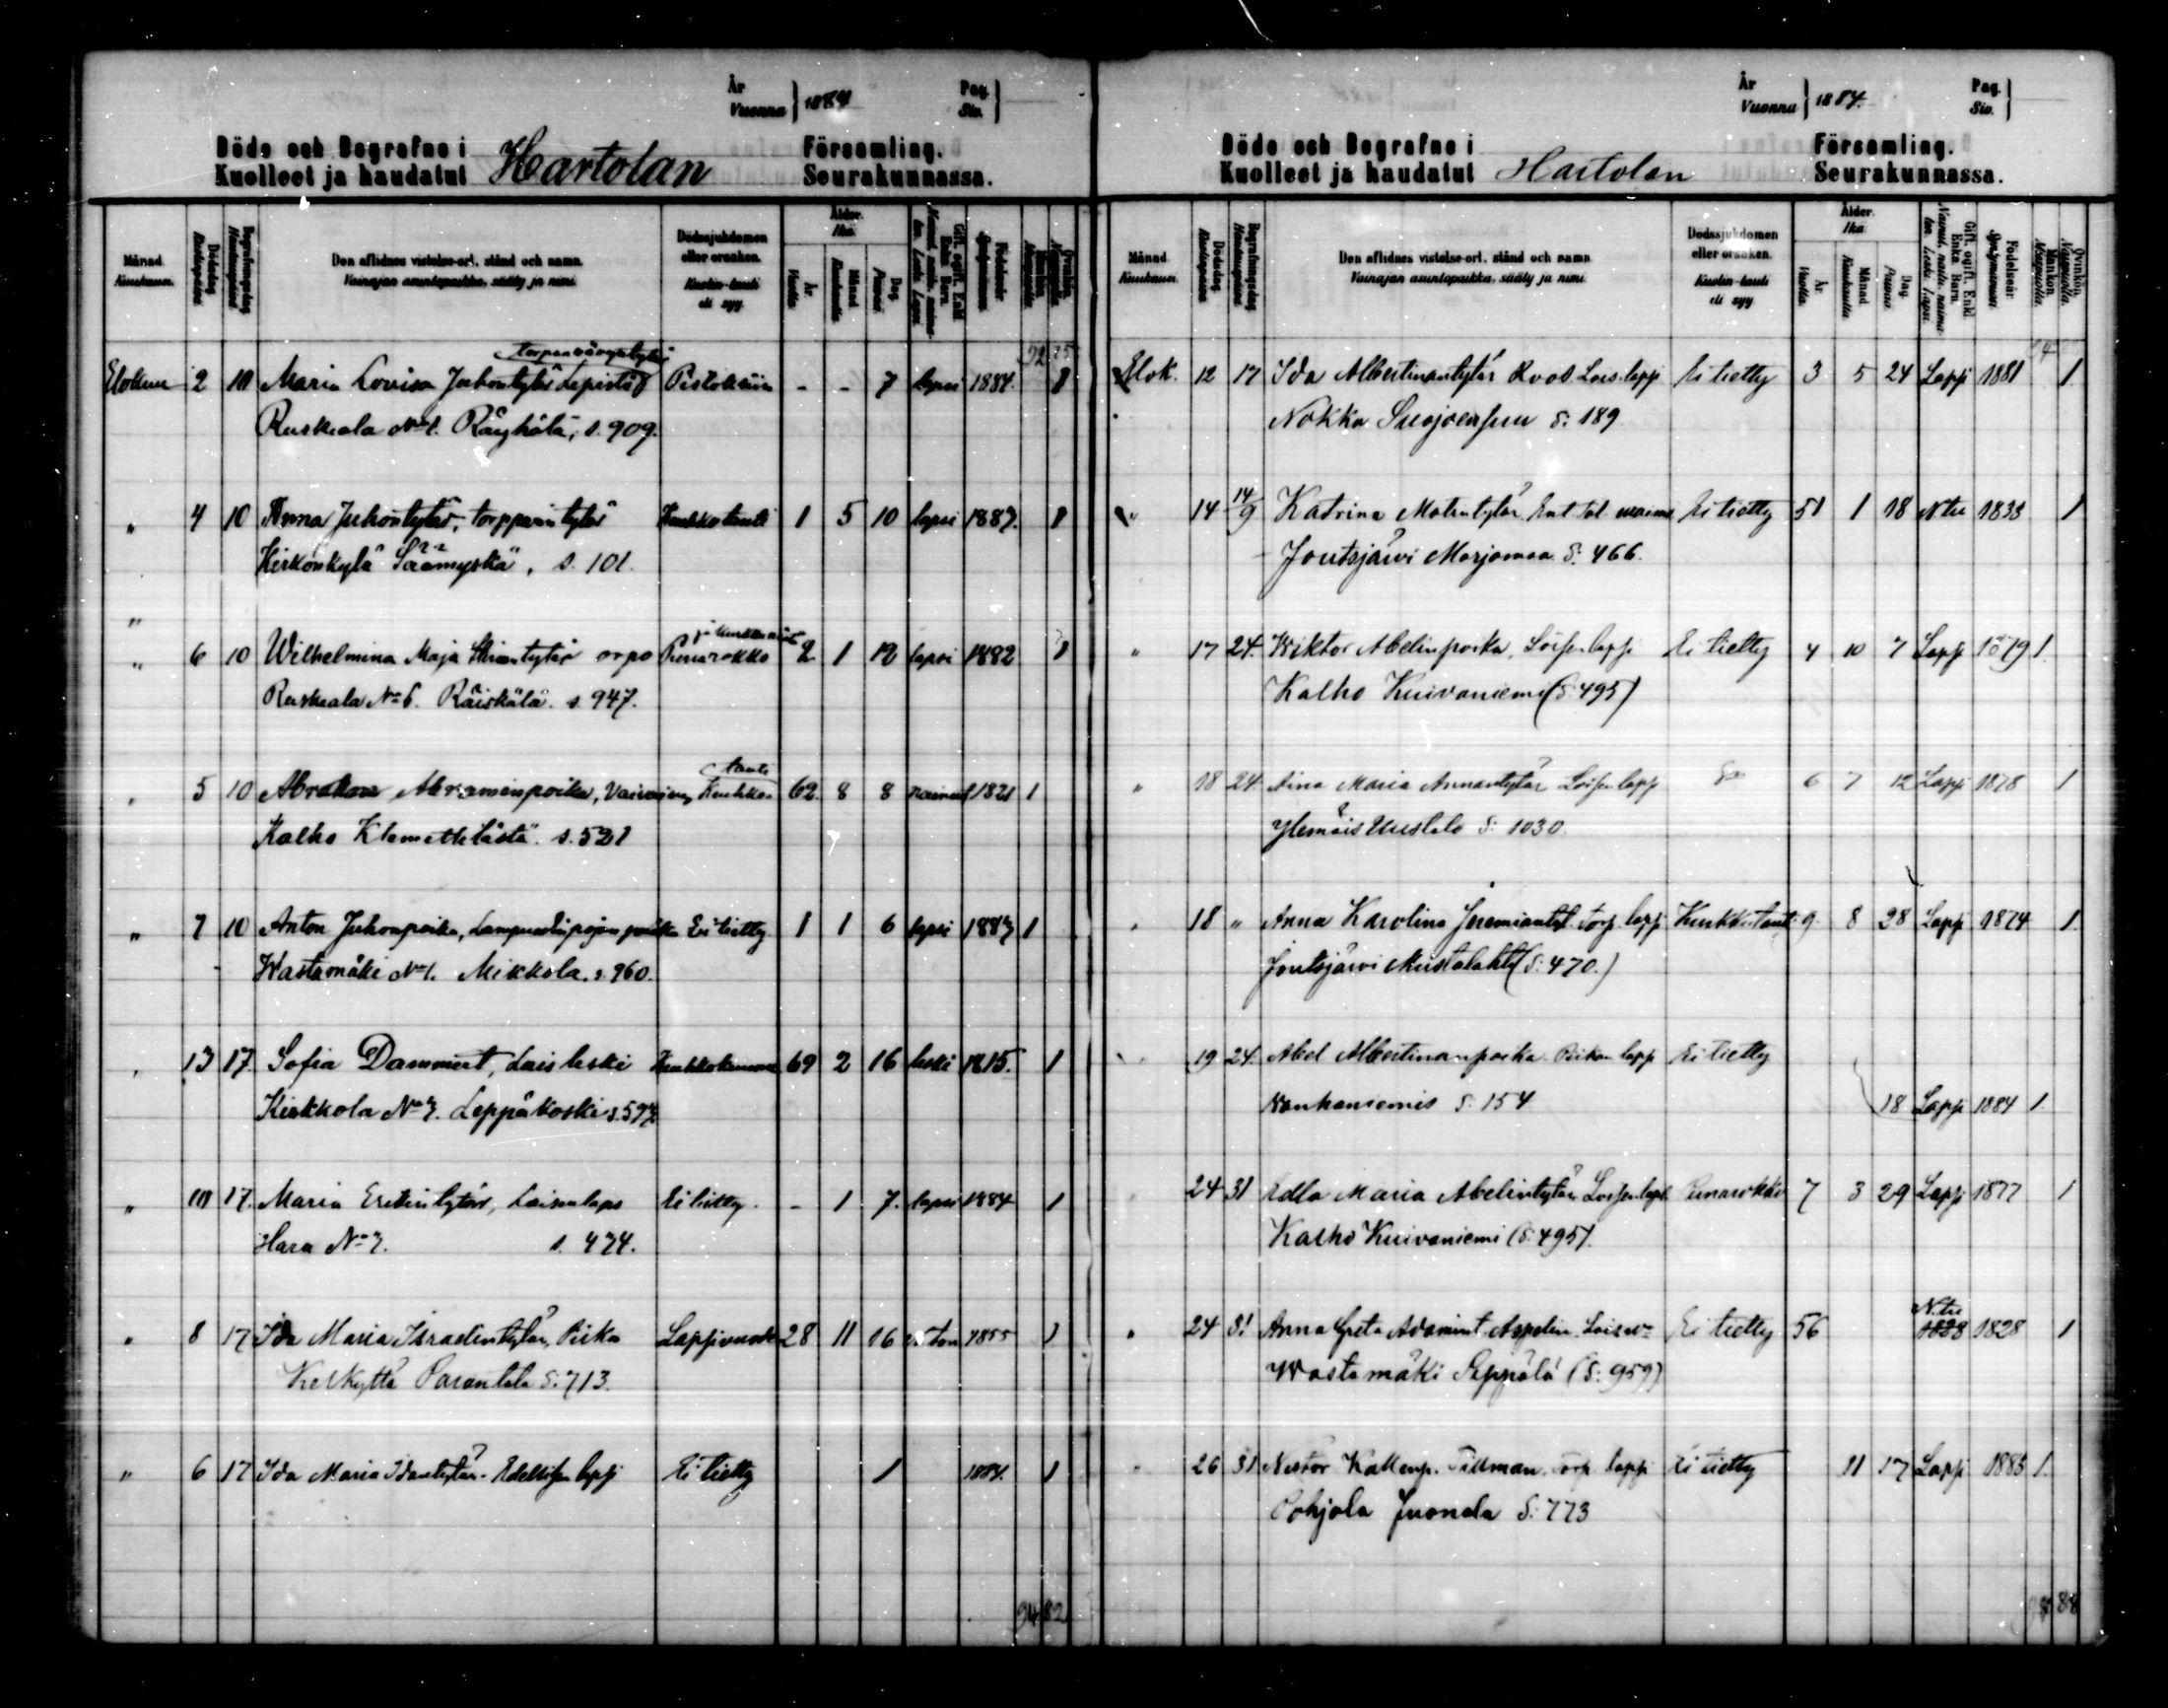 År
Vuonna } 1884
Pag.
Siv. }
Döde och Begrafne i Hartolan Församling.
Kuolleet ja haudatut Seurakunnassa.
Månad. Kuukausi.
Dödsdag Kuolinpäivä
Begrafningsdag Hautauspäivä
Den aflidnes vistelse-ort, stånd och namn.
Vainajan asuntopaikka, sääty ja nimi.
Dödssjukdomen eller orsaken.
Kuolin-tauti eli syy.
Ålder. Ikä.
År. Vuotta.
Månad Kuukautta.
Dag. Päivää
Gift, ogift, Enkl. Enka Barn.
Födelseår Syntymävuosi
Mankön. Miespuolta.
Qvinkön. Naispuolta.
92 75
torpparintytär
Elokuu 2 10 Maria Lovisa Juhontytär Lepistö Pistoksiin - - 7 lapsi 1884. 1
Ruskeala No 1. Räyhälä, s. 909.
" 4 10 Anna Juhontytär, torpparintytär Kuukkotauti 1 5 10 lapsi 1883. 1
Kirkonkylä Säämyskä, s. 101.
"
" 6 10 Wilhelmina Maja tytär orpo Punarokko 2 1 12 lapsi 1882 1
Ruskeala No 6. Räiskälä. s. 947.
" 5 10 Abraham Abraminpoika, Vaivainen Keuhko tauti 62 8 8 nainut 1821 1
Kalho Klemettilästä. s. 521
" 7 10 Anton Juhonpoika, Lampuodinpojan poika Ei tietty 1 1 6 lapsi 1883 1
Wastamäki No 1. Mikkola. s. 960.
" 13 17. Sofia Dammert, Lois leski 69 2 16 leski 1815. 1
Kirkkola No 3. Leppäkoski s. 597.
" 10 17. Maria Erikintytär, Loisenlaps Ei tietty. - 1 7. lapsi 1884 1
Hara No 3. s. 474.
" 8 17 Ida Maria Israelintytär, Piika Lapsivuode 28 11 16 n:ton 1855 1
Keskyttä Parantala S. 713.
" 6 17 Ida Maria Idantytär. lapsi Ei tietty 1 1884. 1
94 82
År
Vuonna } 1884.
Pag.
Siv. }
Döde och Begrafne i Hartolan Församling.
Kuolleet ja haudatut Seurakunnassa.
Månad. Kuukausi.
Dödsdag Kuolinpäivä
Begrafningsdag Hautauspäivä
Den aflidnes vistelse-ort, stånd och namn
Vainajan asuntopaikka, sääty ja nimi.
Dödssjukdomen eller orsaken.
Kuolin-tauti eli syy
Ålder. Ikä.
År. Vuotta.
Månad Kuukautta.
Dag. Päivää
Gift, ogift, Enkl. Enka Barn.
Födelseår Syntymävuosi
Mankön. Miespuolta.
Qvinkön. Naispuolta.
Elok. 12 17 Ida Albertinantytär Lois. lapsi Ei tietty 3 5 24 Lapsi 1881 1
Nokka Suojoensuu S: 189
" 14 14/9 Katrina Matintytär Ent. tal. waimo Ei tietty 51 1 18 N:tu 1833 1
Joutsjärwi Marjamaa S: 466.
" 17 24. Wiktor Abelinpoika, Loisen lapsi Ei tietty 4 10 7 Lapsi 1879 1.
Kalho Kuivaniemi (S: 495)
" 18 24. Aina Maria Annantytär Loisen laps 6 7 12 Lapsi 1878 1
Ylemäis Uusitalo S: 1030.
" 18 " Anna Karolina Jeremiant. Torp. laps Kurkkutauti 9 8 28 Lapsi 1874 1.
Joutsjärwi Mustalahti (S: 470.)
" 19 24. Abel Albertinanpoika. Piikan laps Ei tietty
Nanhaniemis S: 154 18 Lapsi 1884 1.
" 24 31 Edla Maria Abelintytär Loisen laps. Punarokko 7 3 29 Lapsi 1877 1
Kalho Kuivaniemi (S: 495).
" 24 31 Anna Greta Adamint. Aspelin Ei tietty 56 N:tu 1828 1
Wastamäki Seppälä (S: 959)
" 26 31 Nestor Kallenp. Tillman Torp. lapsi Ei tietty 11 17 Lapsi 1883 1.
Pohjola Juonela S: 773
88